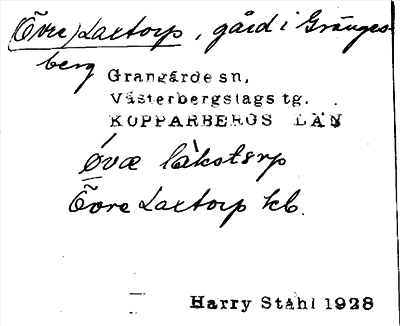 (Övre) Laxtorp, gård i Gränges-
berg
Grangärde sn,
Västerbergslags tg.
KOPPARBERGS LÄN
ø̀væ làkstɛrp
Övre Laxtorp kb.
Harry Ståhl 1928